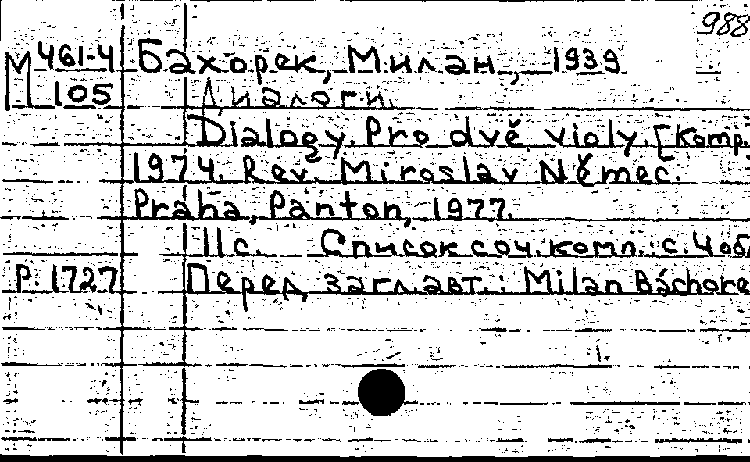 988
М 461-4 Бахорек, Милан, 1939
105 Диалоги.
Dialogy. Pro dvě violy. [Komp.
1974. Rev. Miroslav Němec.
Praha, Panton, 1977.
11 с. Список соч. комп.: с. 4 обл
Р. 1727 Перед загл. авт.: Milan Báchore